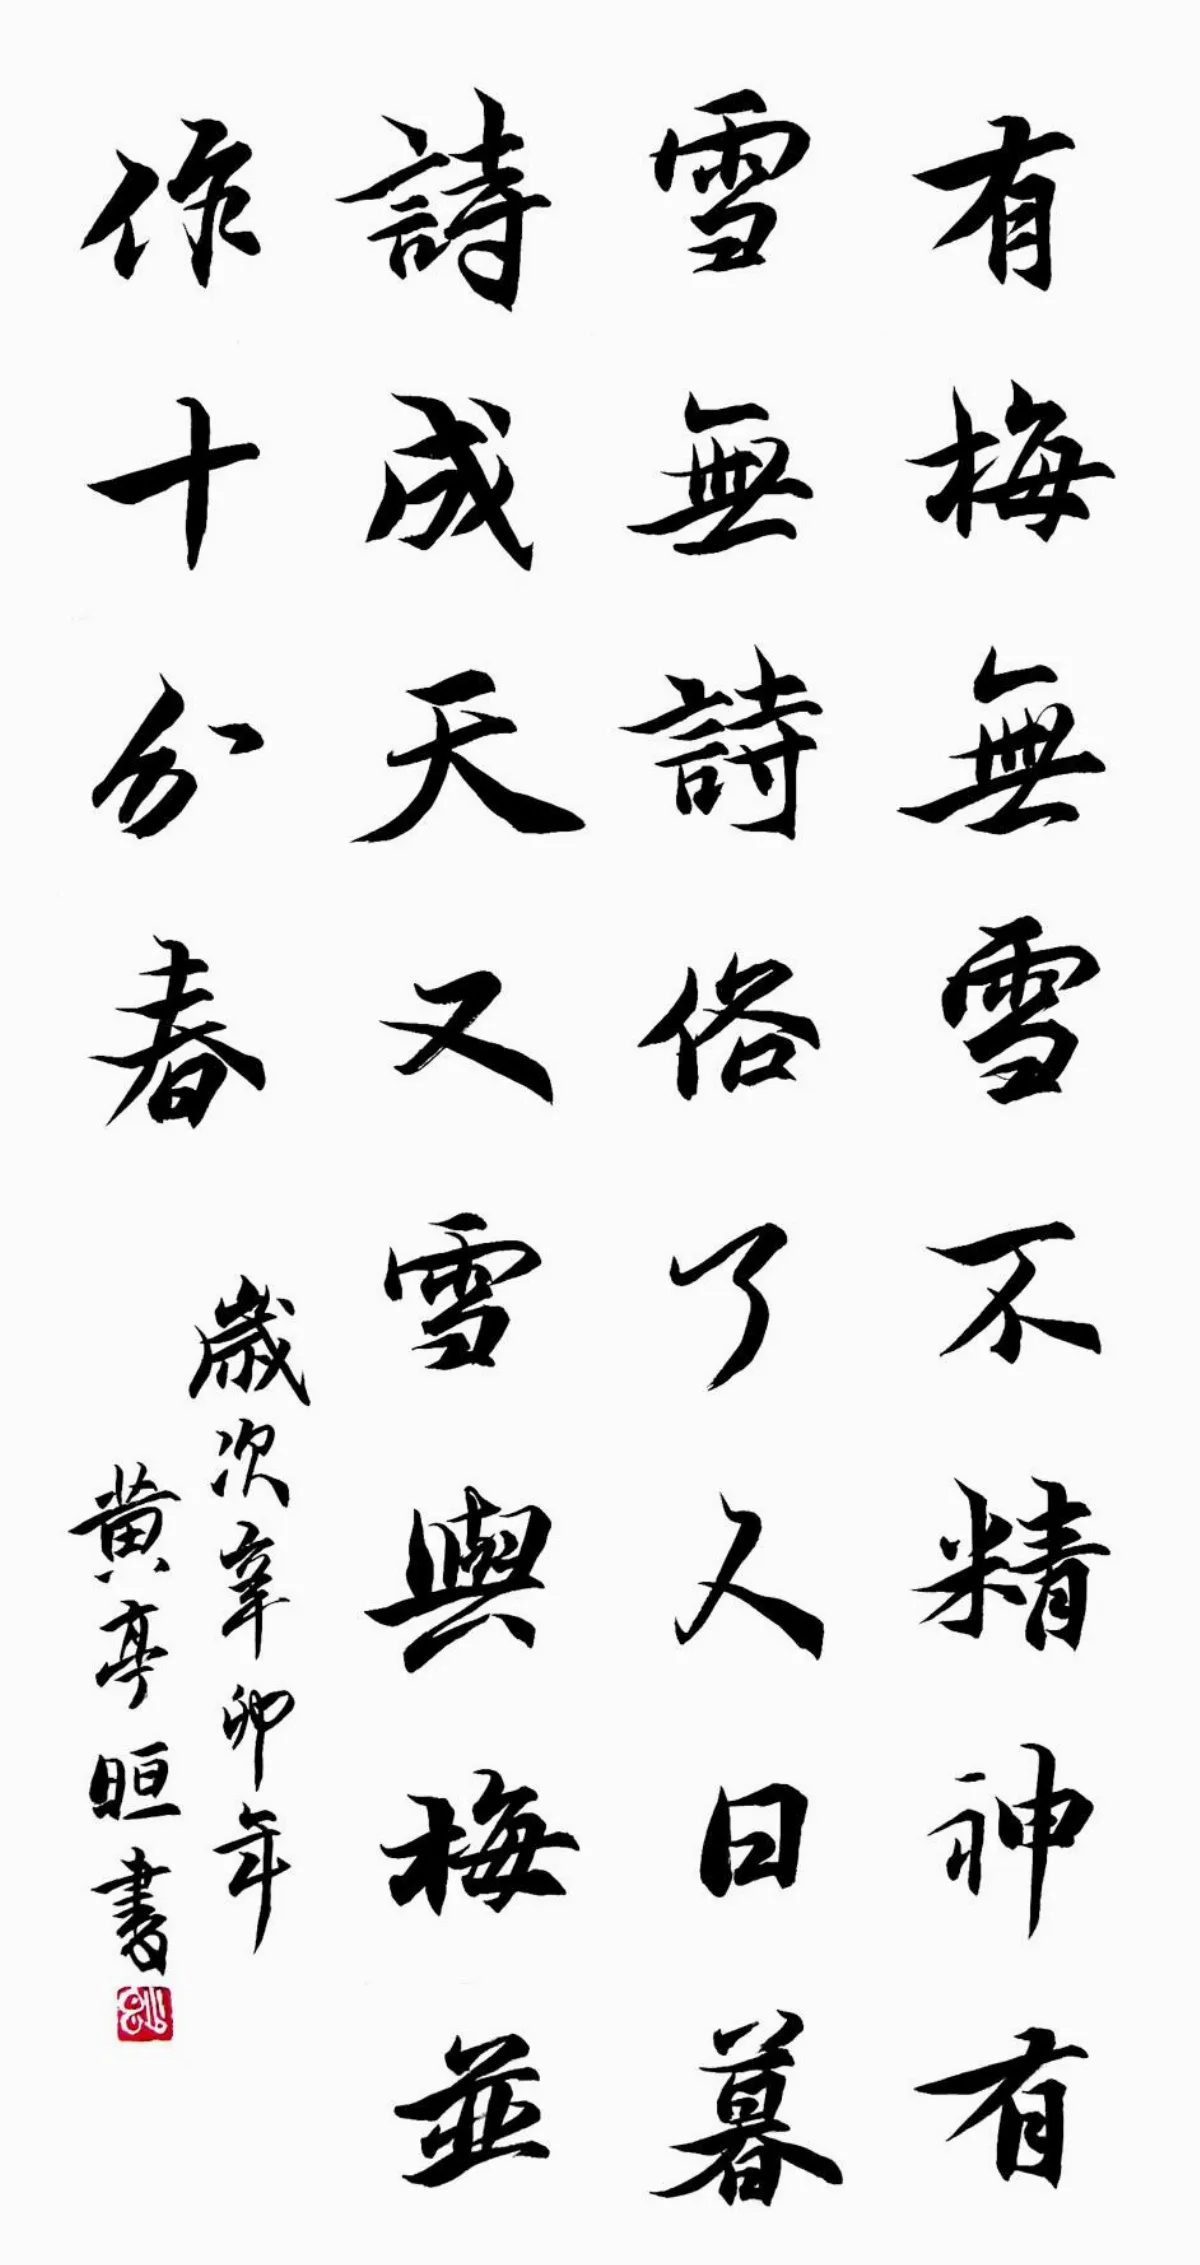 有梅無雪不精神有
雪無詩俗了人日暮
詩成天又雪與梅並
作十分春
歲次辛卯年
黄亭晅書